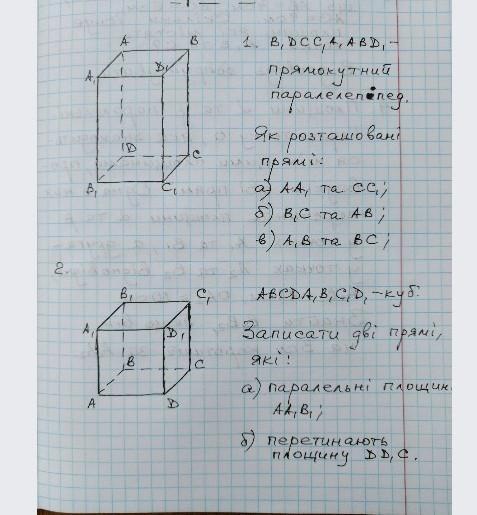 1. B₁DCC₁A₁ABD₁ –
прямокутний
паралелепіпед.
Як розташовані
прямі:
а) AA₁ та CC₁;
б) B₁C та AB;
в) A₁B та BC;
A
B
A₁
D₁
D
C
B₁
C₁
2.
ABCDA₁B₁C₁D₁ – куб.
Записати дві прямі,
які:
а) паралельні площин
AA₁B₁;
б) перетинають
площину DD₁C.
B₁
C₁
A₁
D₁
B
C
A
D